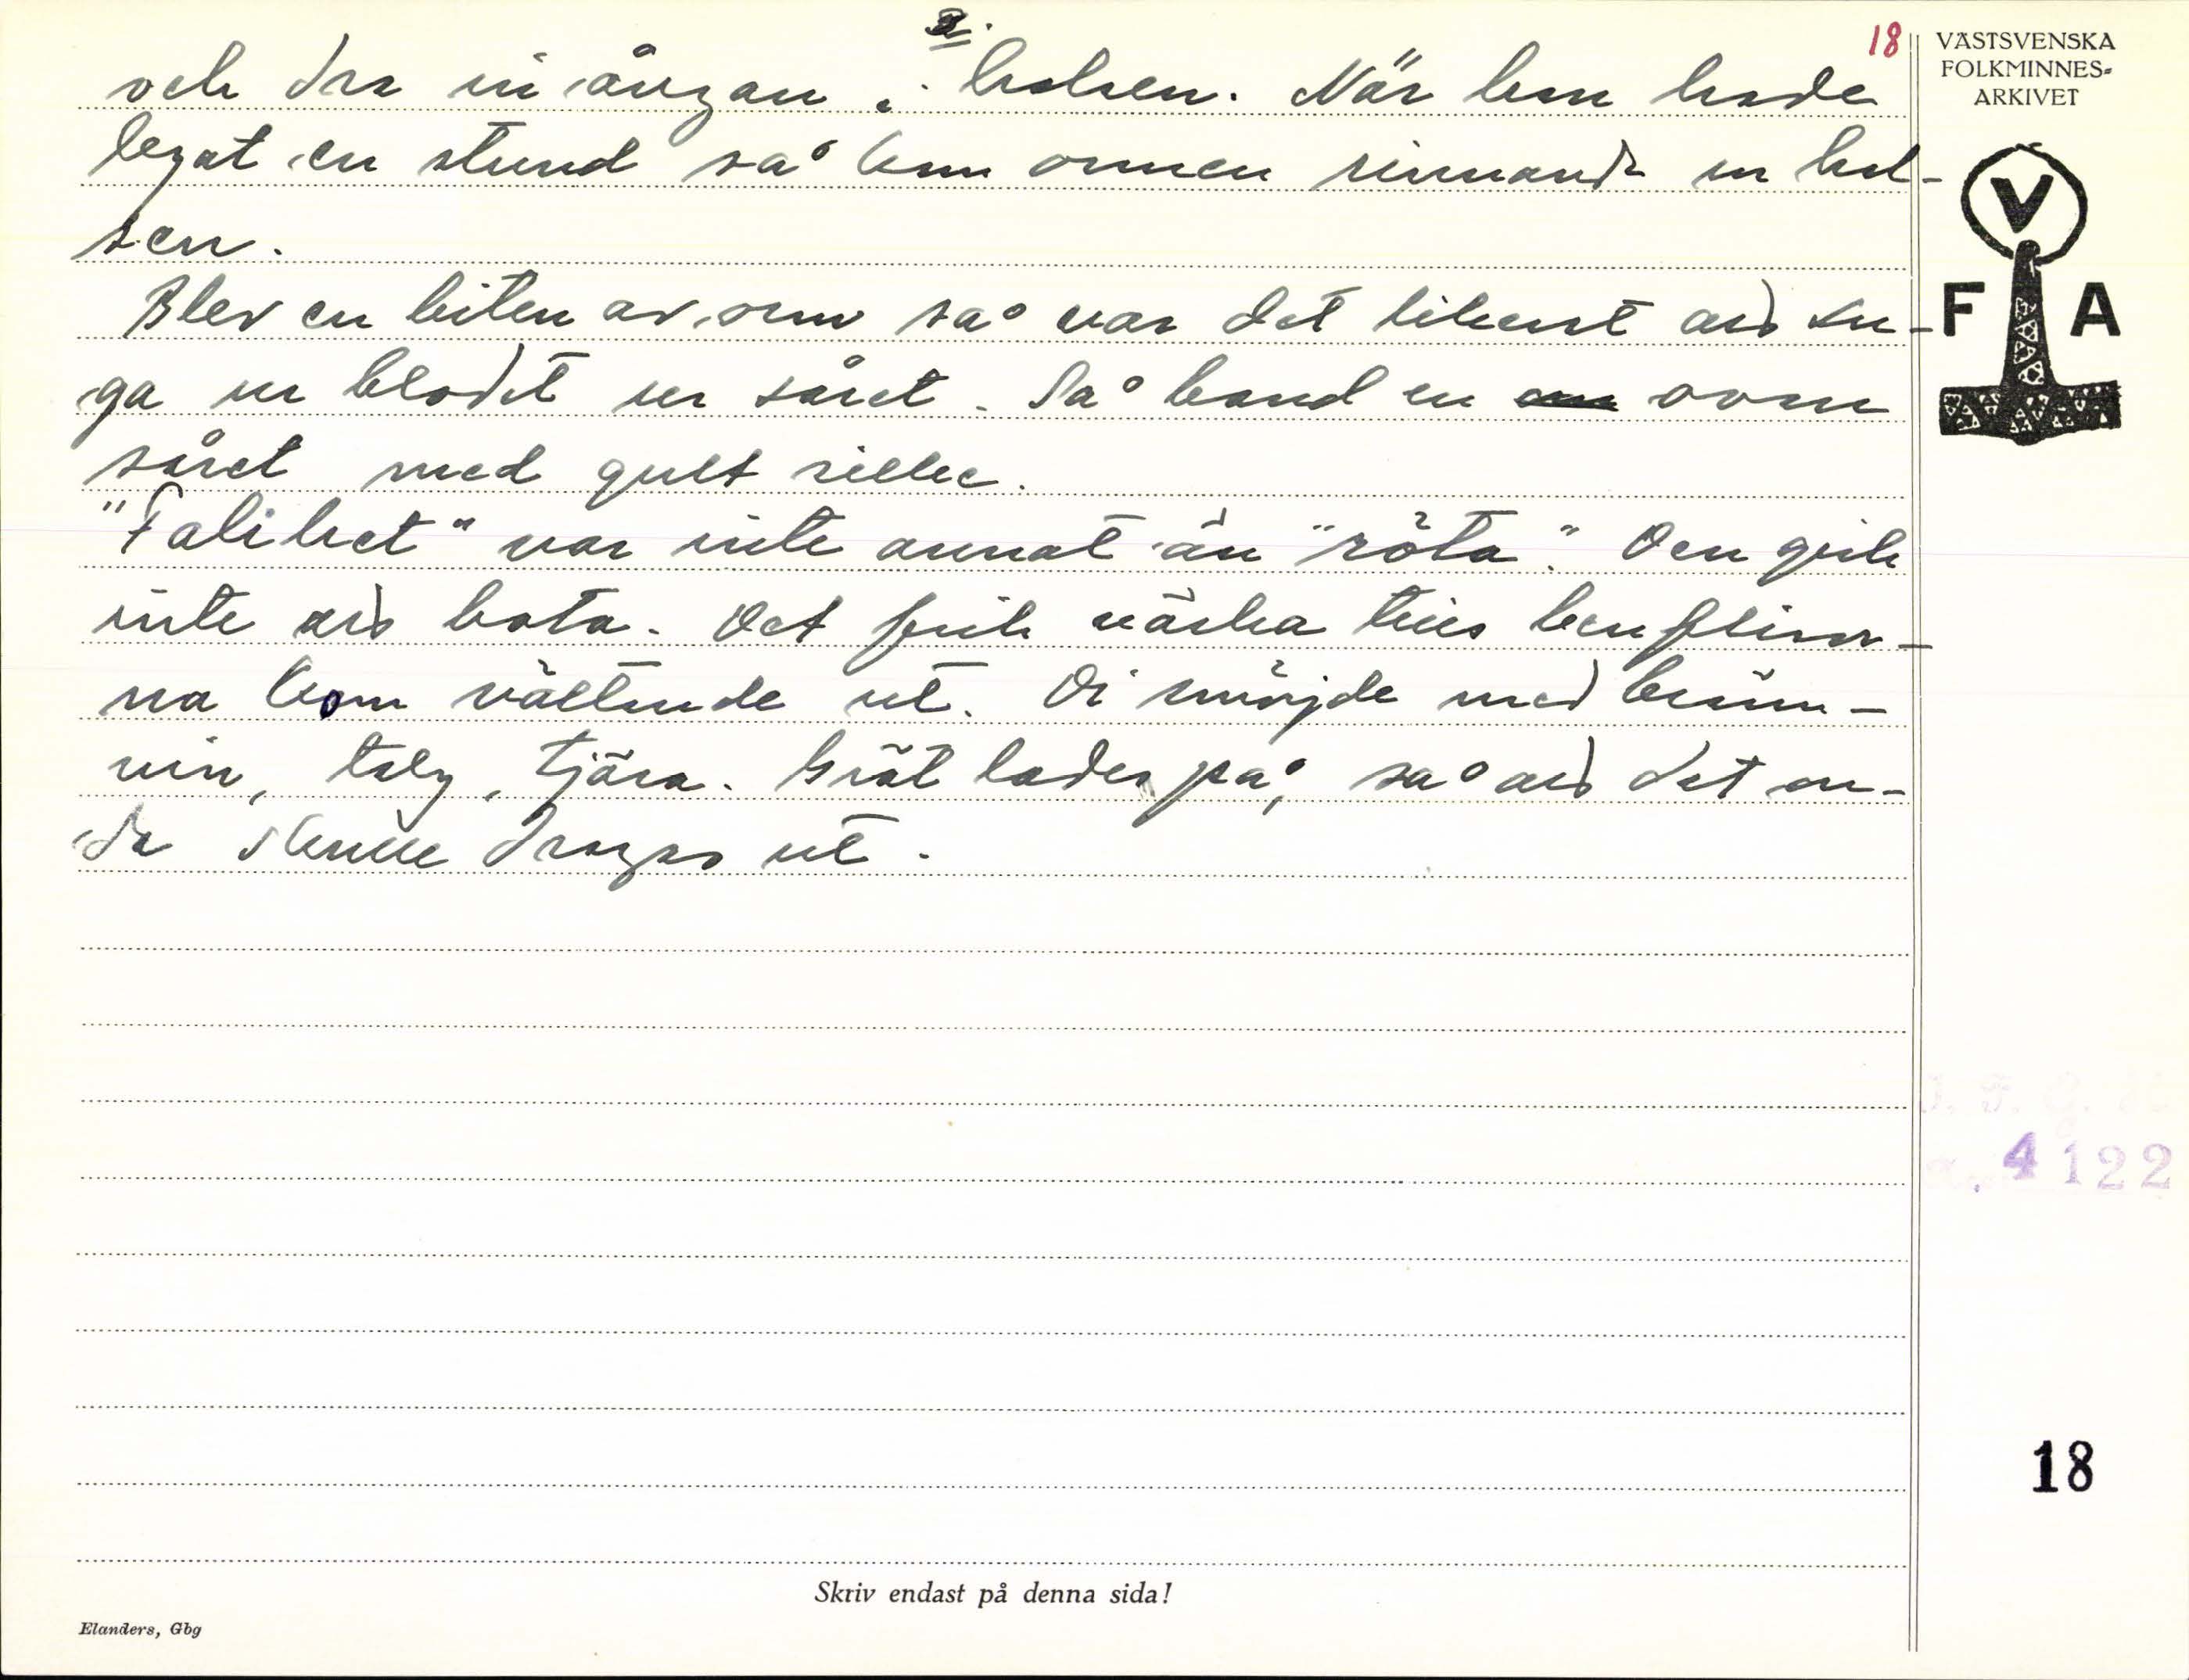 18
och dra in ångan i halsen. När han hade
legat en stund så kom ormen rinnande ur hal-
sen.
Blev en biten av orm så var det likast att su-
ga ur blodet ur såret. Så band en ovom
såret med gult silke.
"Falihet" var inte annat än "röta". Den gick
inte att bota. Det fick värka tills benflisor-
na kom vältende ut. Di smörjde med bränn-
vin, talg, tjära. Gröt lades på, så att det on-
da skulle dragas ut.
VÄSTSVENSKA
FOLKMINNES-
ARKIVET
V
F A
4122
18
Skriv endast på denna sida!
Elanders, Gbg